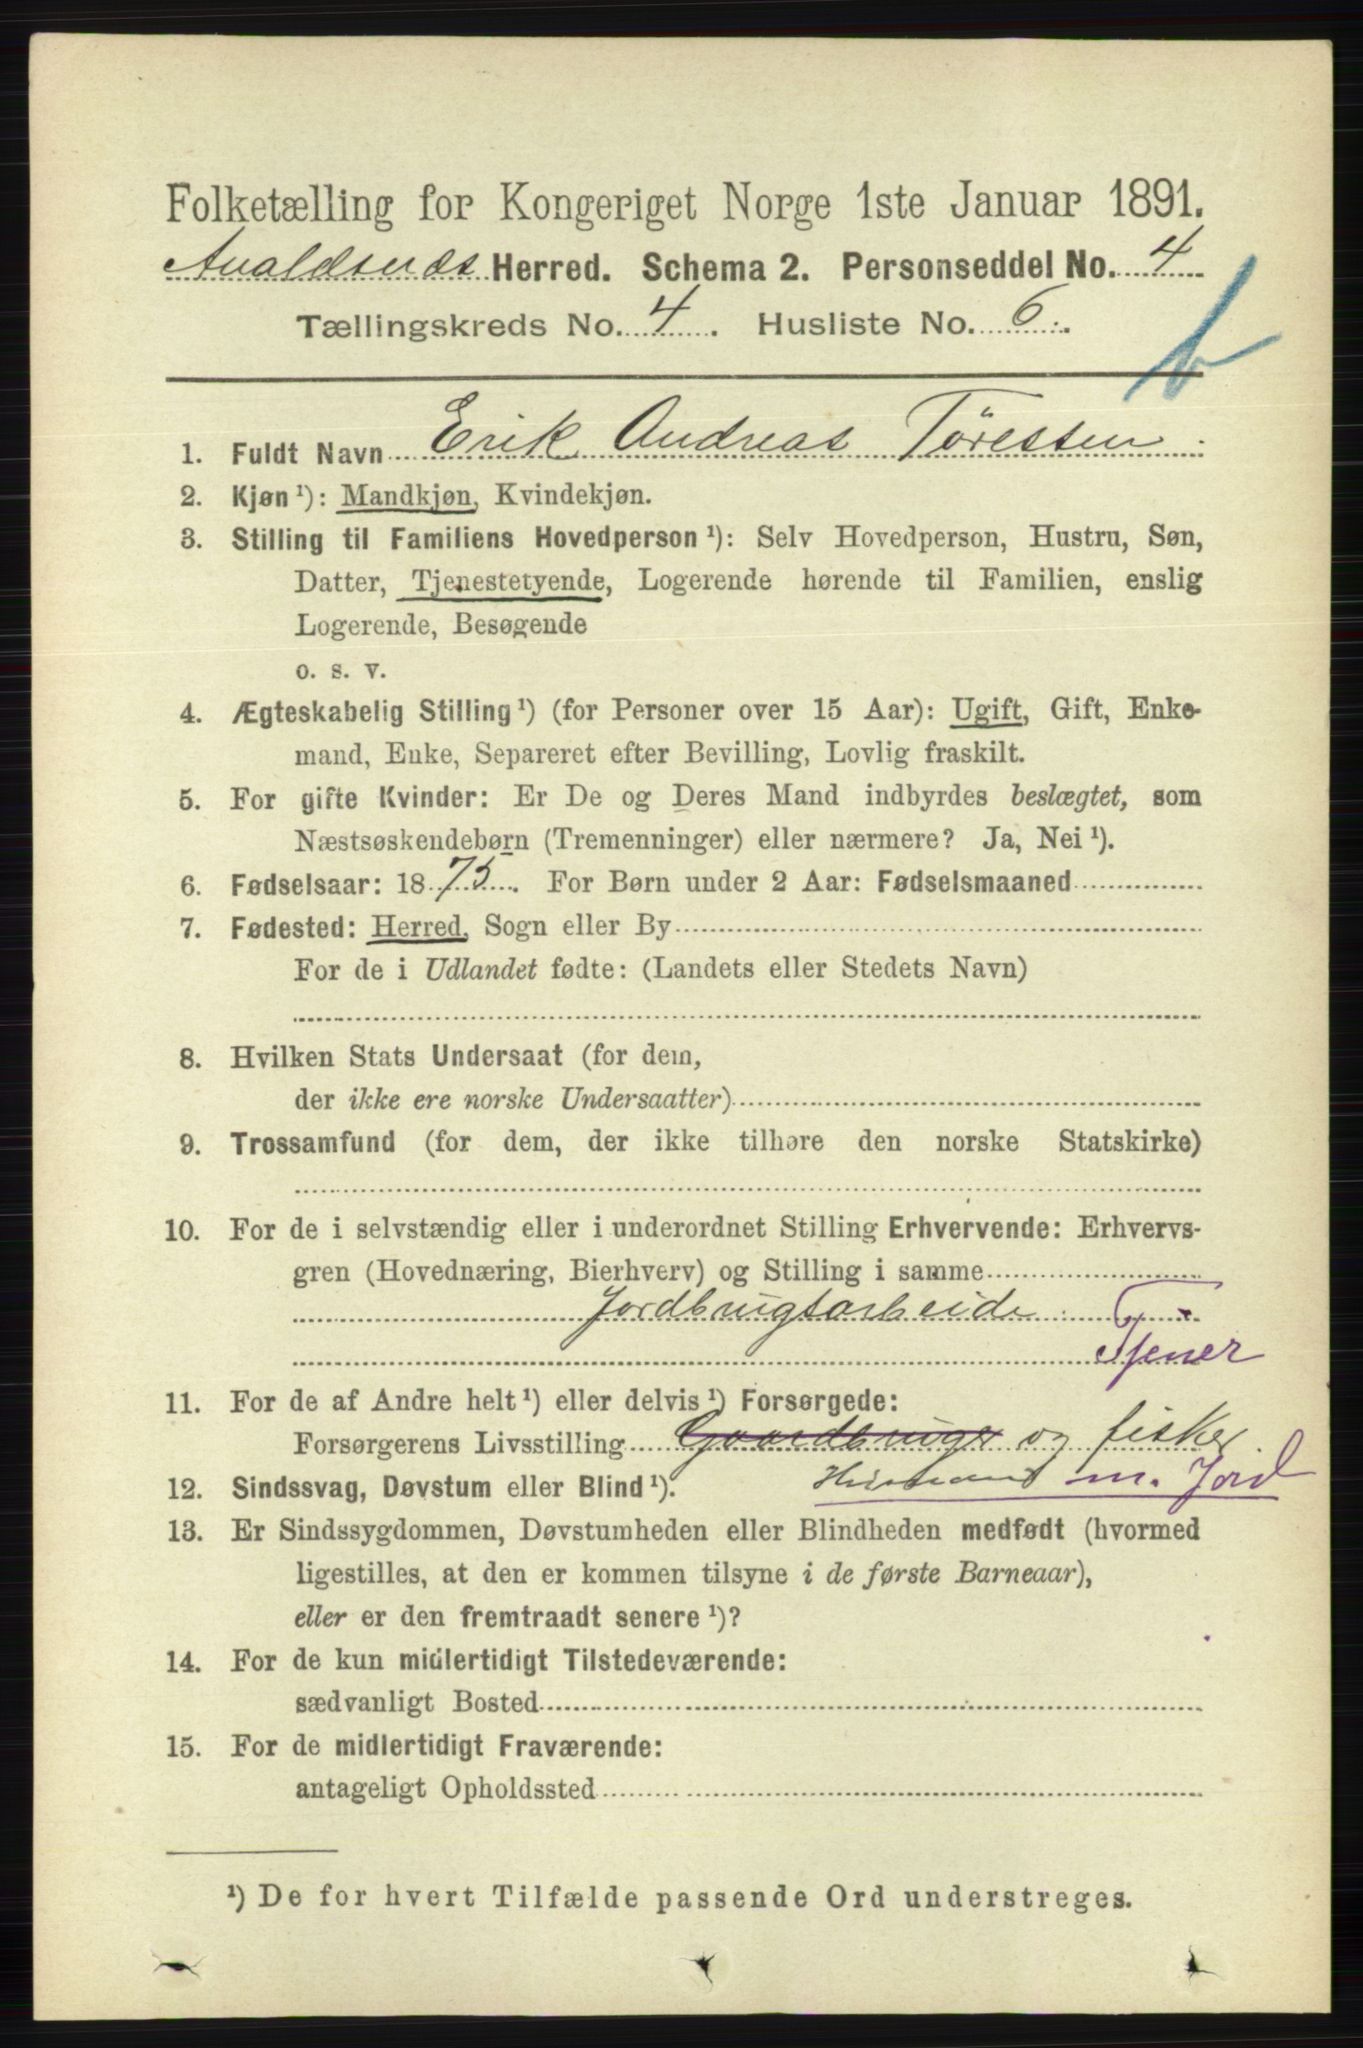 Folketælling for Kongeriget Norge 1ste Januar 1891.
Avaldsnæs Herred. Schema 2. Personseddel No. 4
Tællingskreds No. 4. Husliste No. 6.
b
1. Fuldt Navn Erik Andreas Tøressen.
2. Kjøn ¹): Mandkjøn, Kvindekjøn.
3. Stilling til Familiens Hovedperson ¹): Selv Hovedperson, Hustru, Søn,
Datter, Tjenestetyende, Logerende hørende til Familien, enslig
Logerende, Besøgende
o. s. v.
4. Ægteskabelig Stilling ¹) (for Personer over 15 Aar): Ugift, Gift, Enke-
mand, Enke, Separeret efter Bevilling, Lovlig fraskilt.
5. For gifte Kvinder: Er De og Deres Mand indbyrdes beslægtet, som
Næstsøskendebørn (Tremenninger) eller nærmere? Ja, Nei ¹).
6. Fødselsaar: 1875. For Børn under 2 Aar: Fødselsmaaned
7. Fødested: Herred, Sogn eller By
For de i Udlandet fødte: (Landets eller Stedets Navn)
8. Hvilken Stats Undersaat (for dem,
der ikke ere norske Undersaatter)
9. Trossamfund (for dem, der ikke tilhøre den norske Statskirke)
10. For de i selvstændig eller i underordnet Stilling Erhvervende: Erhvervs-
gren (Hovednæring, Bierhverv) og Stilling i samme
Jordbrugsarbeide.
Tjener
11. For de af Andre helt ¹) eller delvis ¹) Forsørgede:
Forsørgerens Livsstilling Gaardbruger og fisker
Husmand m. Jord
12. Sindssvag, Døvstum eller Blind ¹).
13. Er Sindssygdommen, Døvstumheden eller Blindheden medfødt (hvormed
ligestilles, at den er kommen tilsyne i de første Barneaar),
eller er den fremtraadt senere ¹)?
14. For de kun midlertidigt Tilstedeværende:
sædvanligt Bosted
15. For de midlertidigt Fraværende:
antageligt Opholdssted
¹) De for hvert Tilfælde passende Ord understreges.